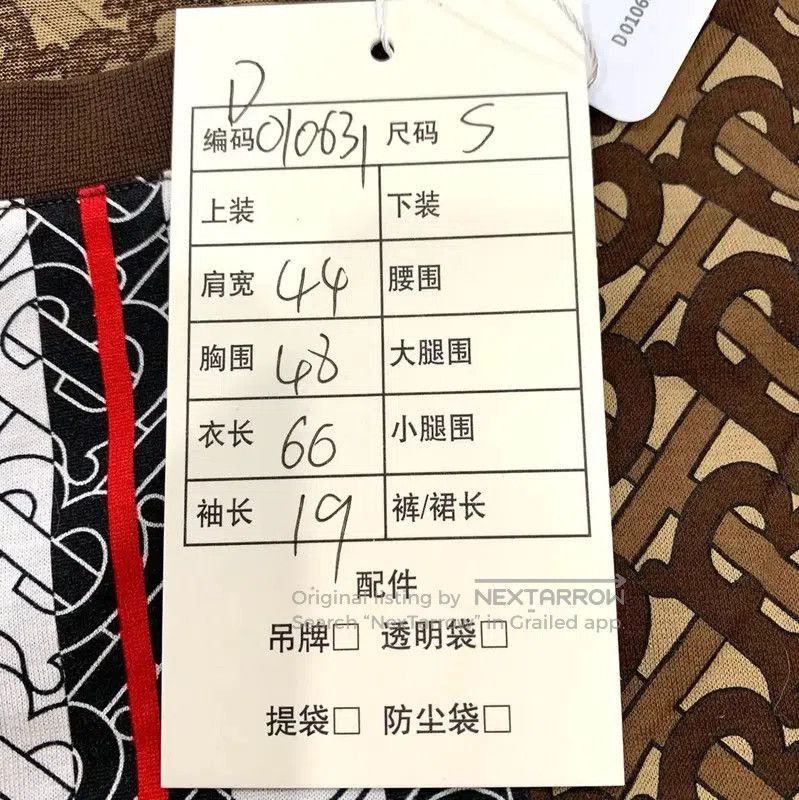 D0106
D
编码010631 尺码 S
上装 下装
肩宽 44 腰围
胸围 48 大腿围
衣长 66 小腿围
袖长 19 裤/裙长
配件
Original listing by NEXTARROW
Search “NexTarrow” in Grailed app
吊牌□ 透明袋□
提袋□ 防尘袋□